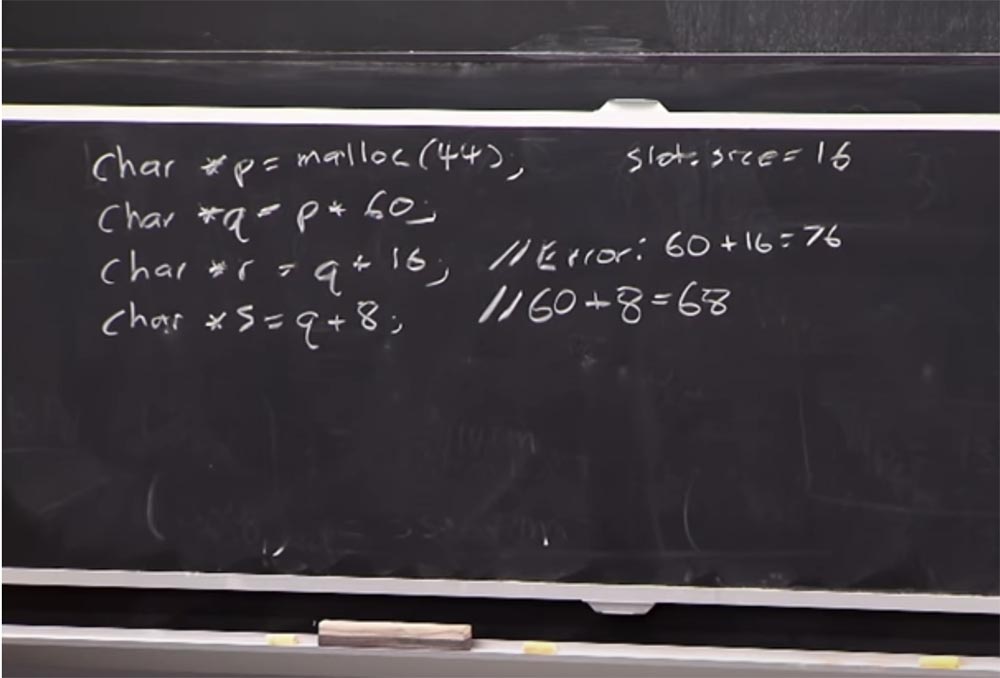 char *p = malloc(44); slot.size = 16
char *q = p + 60;
char *r = q + 16; //Error: 60 + 16 = 76
char *s = q + 8; //60 + 8 = 68